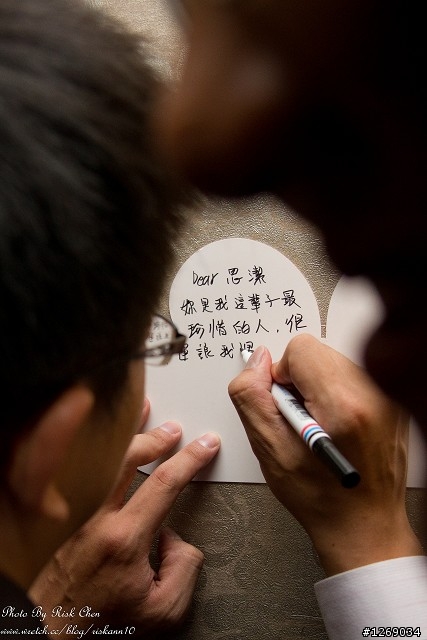 Dear 思潔
妳是我這輩子最
珍惜的人,很
我
Photo By Risk Chen
www.wretch.cc/blog/riskann10
#1269034